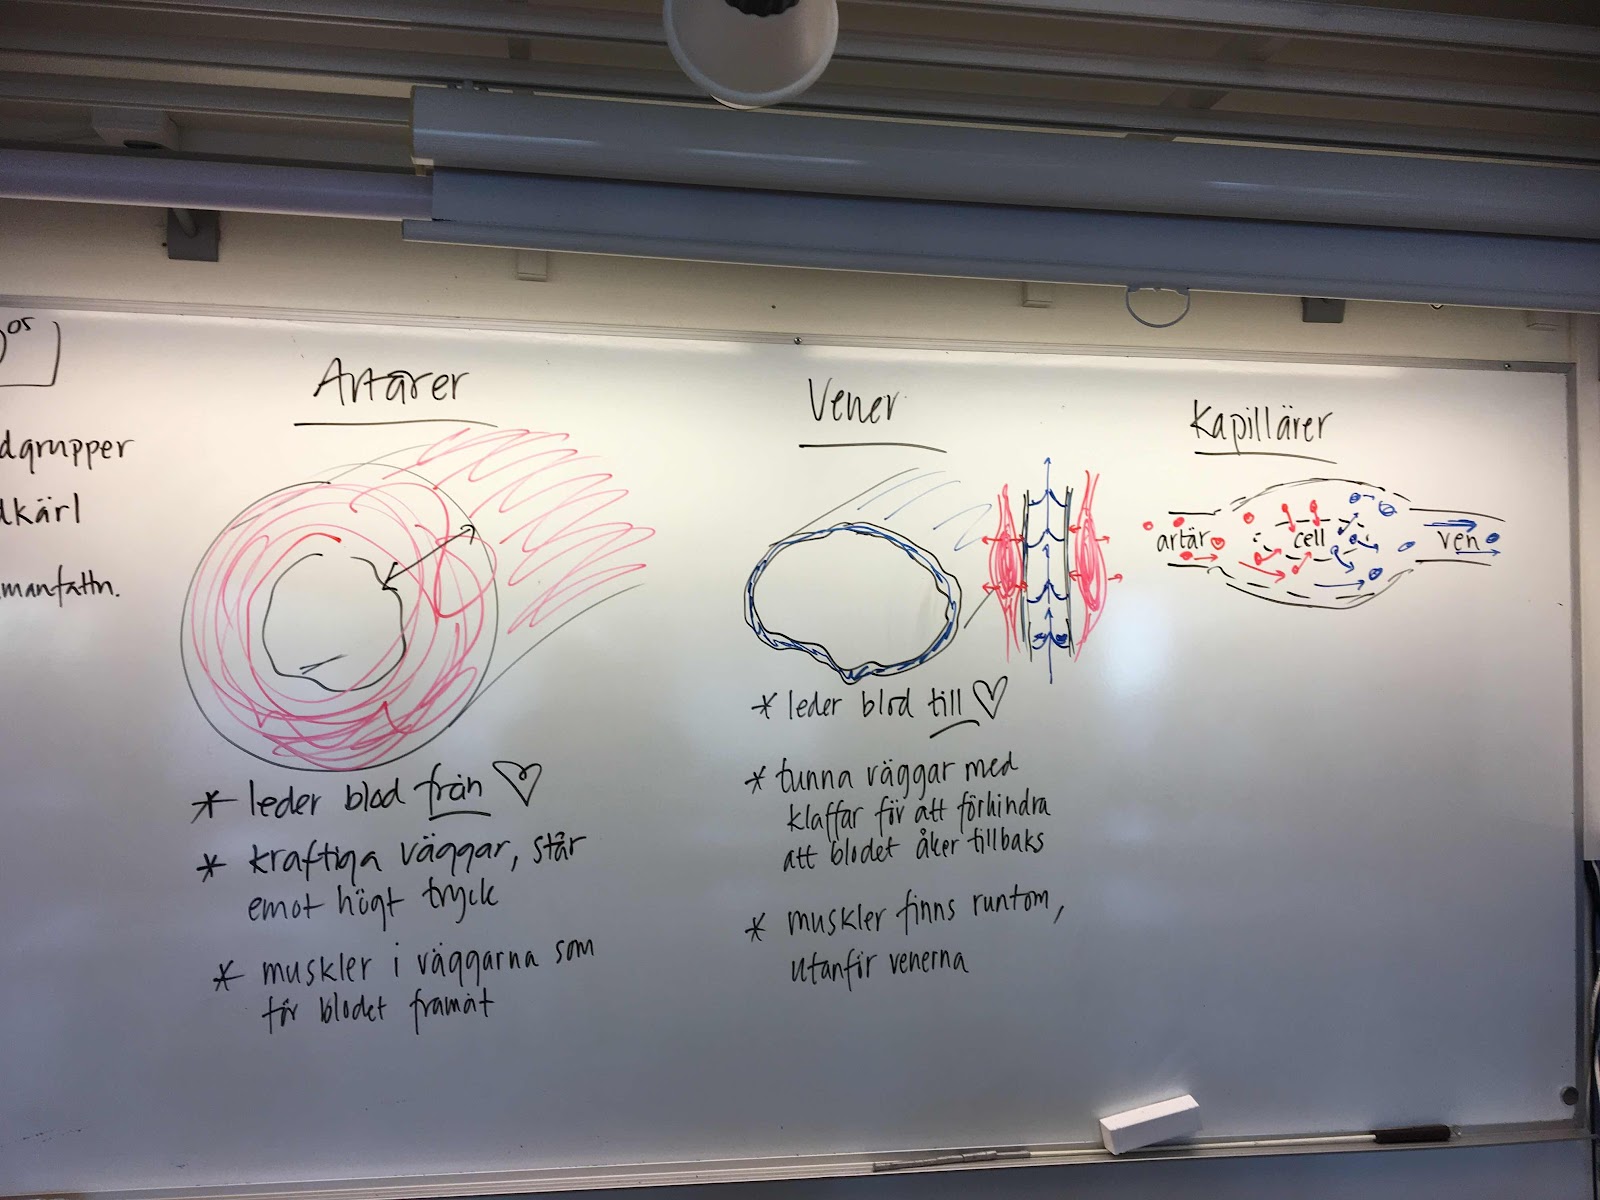 05
dgrupper
dkärl
manfattn.
Artärer
* leder blod från ♡
* kraftiga väggar, står
emot högt tryck
* muskler i väggarna som
för blodet framåt
Vener
* leder blod till ♡
* tunna väggar med
klaffar för att förhindra
att blodet åker tillbaks
* muskler finns runtom,
utanför venerna
Kapillärer
artär cell ven